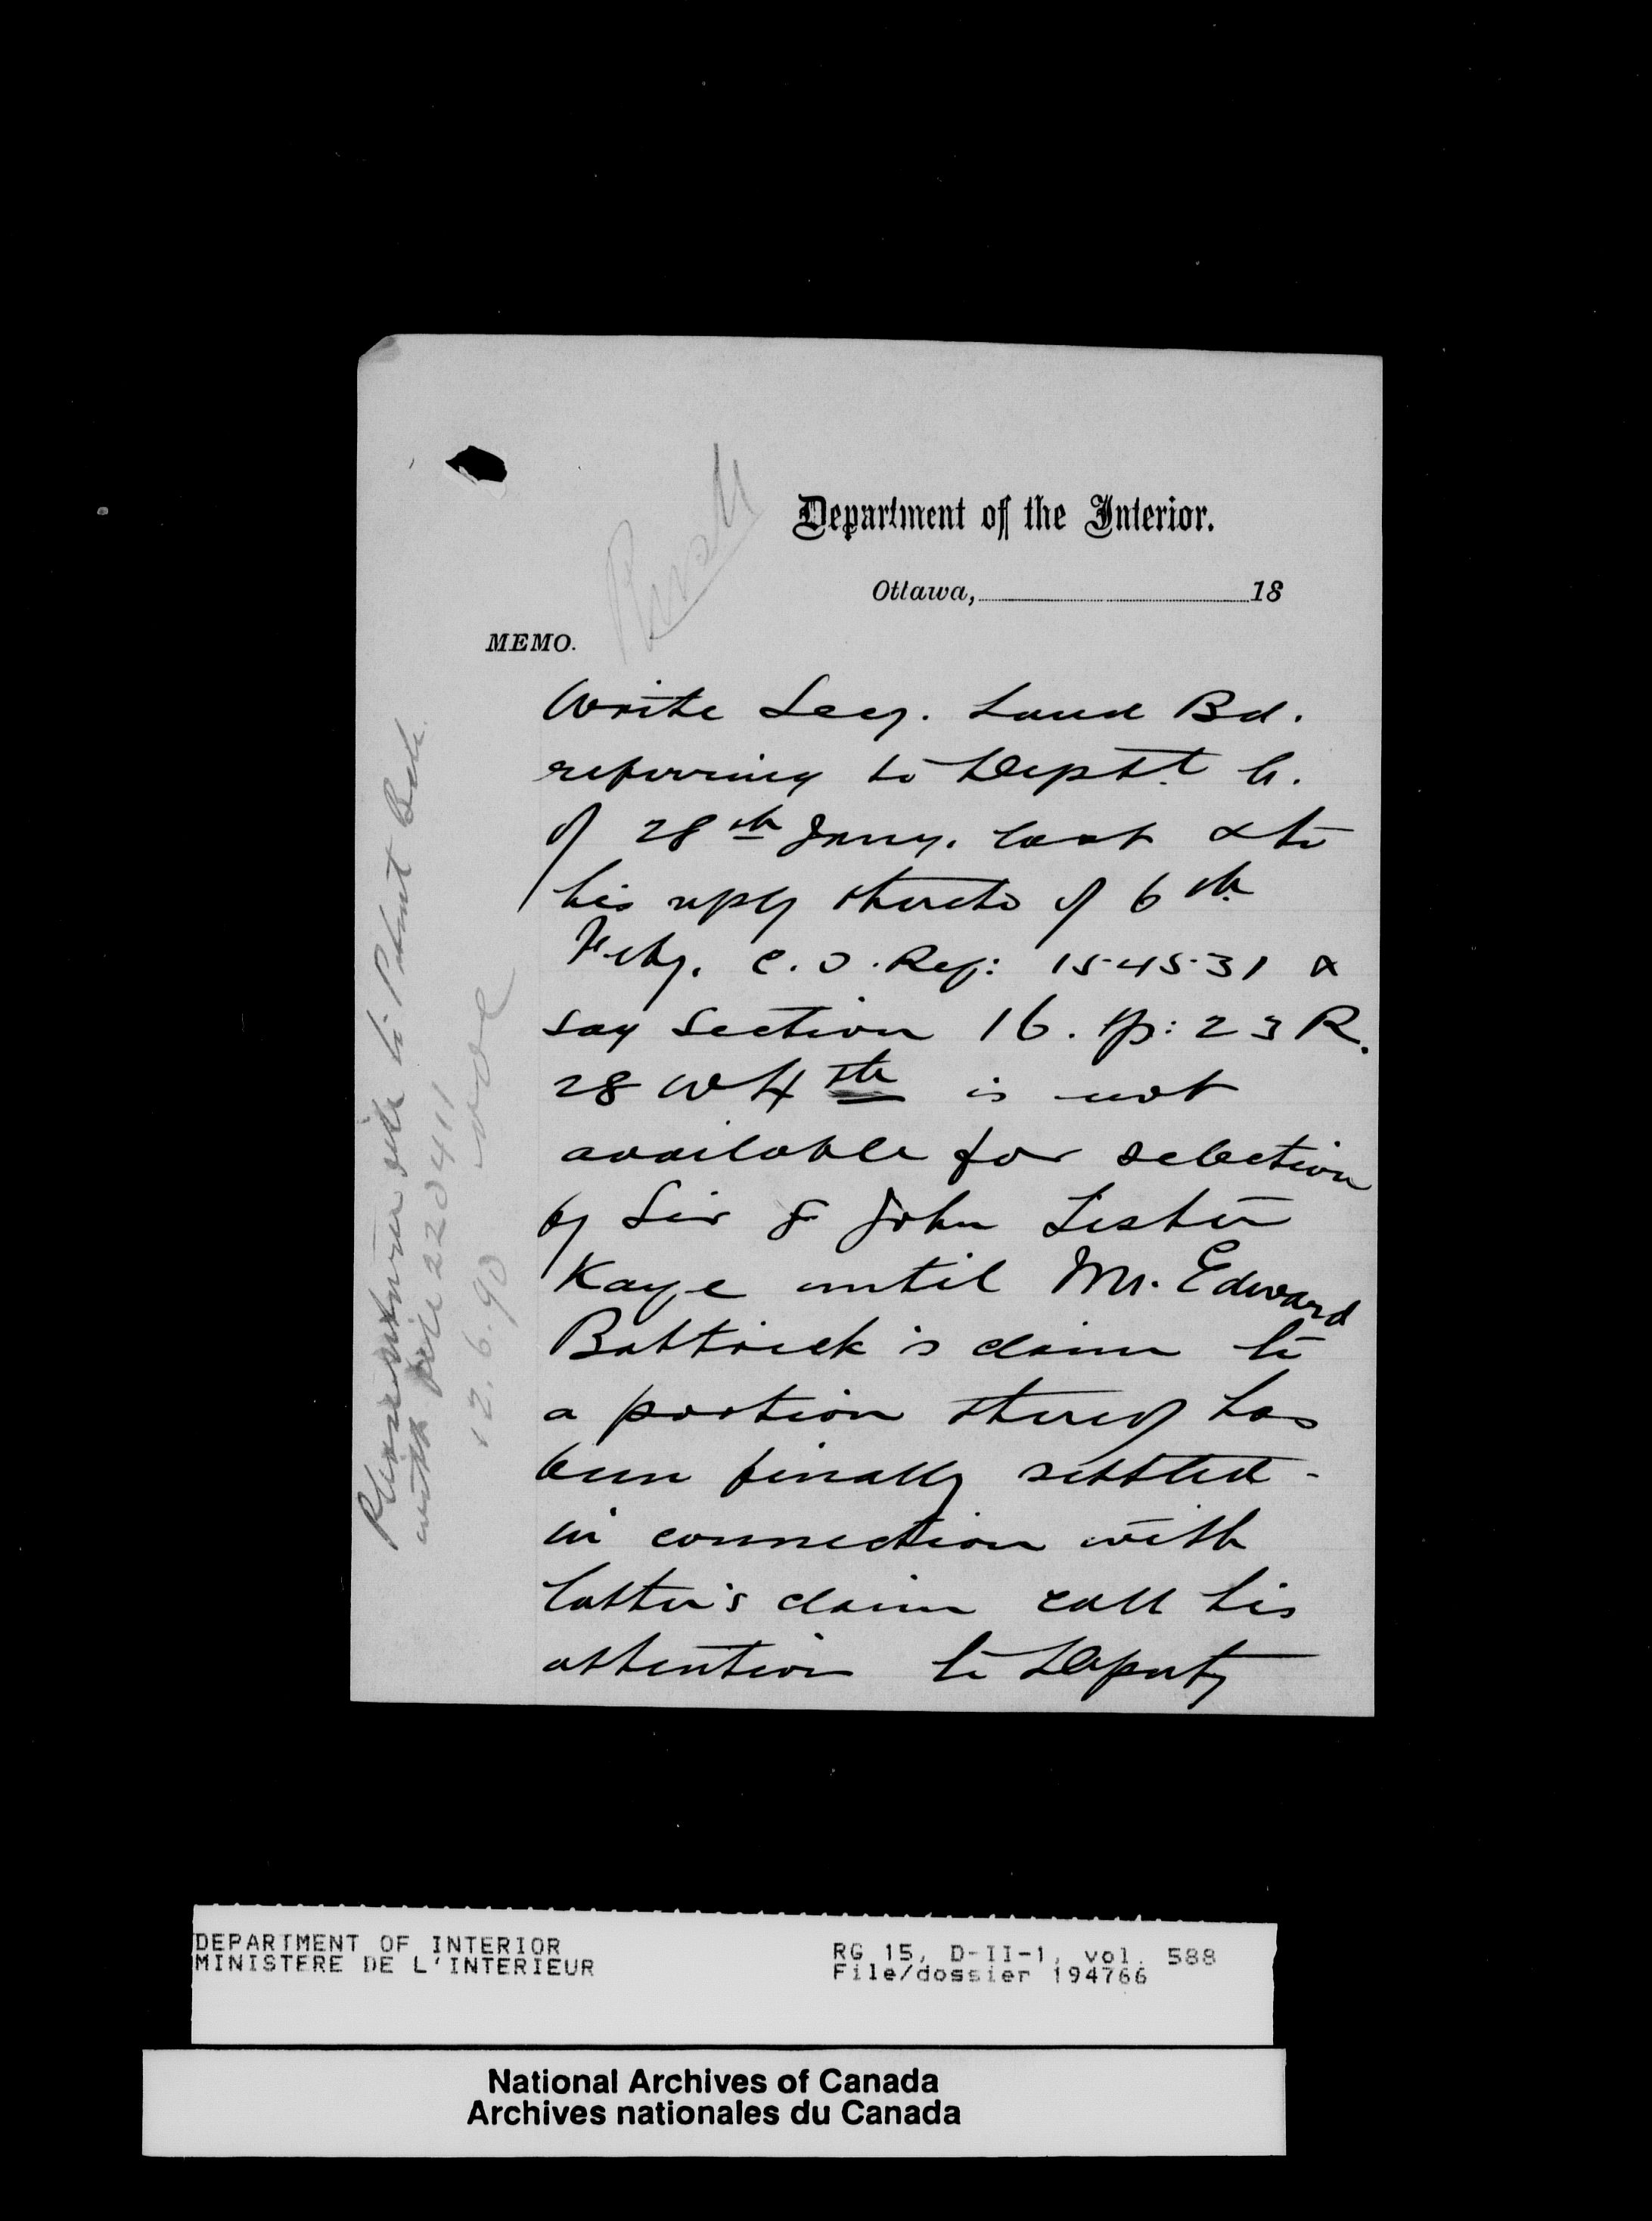 Rush
Department of the Interior.
Ottawa, 18
MEMO.
Write Secy. Land Bd.
referring to Deptt. L.
of 28th Jany. last & to
his reply thereto of 6th
Feby. C.O. Ref: 154531 &
say Section 16. Tp: 23 R.
28 W 4th is not
available for selection
by Sir John Lister
Kaye until Mr. Edward
Bottrick's claim to
a portion thereof has
been finally settled -
in connection with
latter's claim call his
attention to Deputy
Please
with file 220411
12.6.90
DEPARTMENT OF INTERIOR
MINISTERE DE L'INTERIEUR
RG 15, D-II-1, vol. 588
File/dossier 194766
National Archives of Canada
Archives nationales du Canada